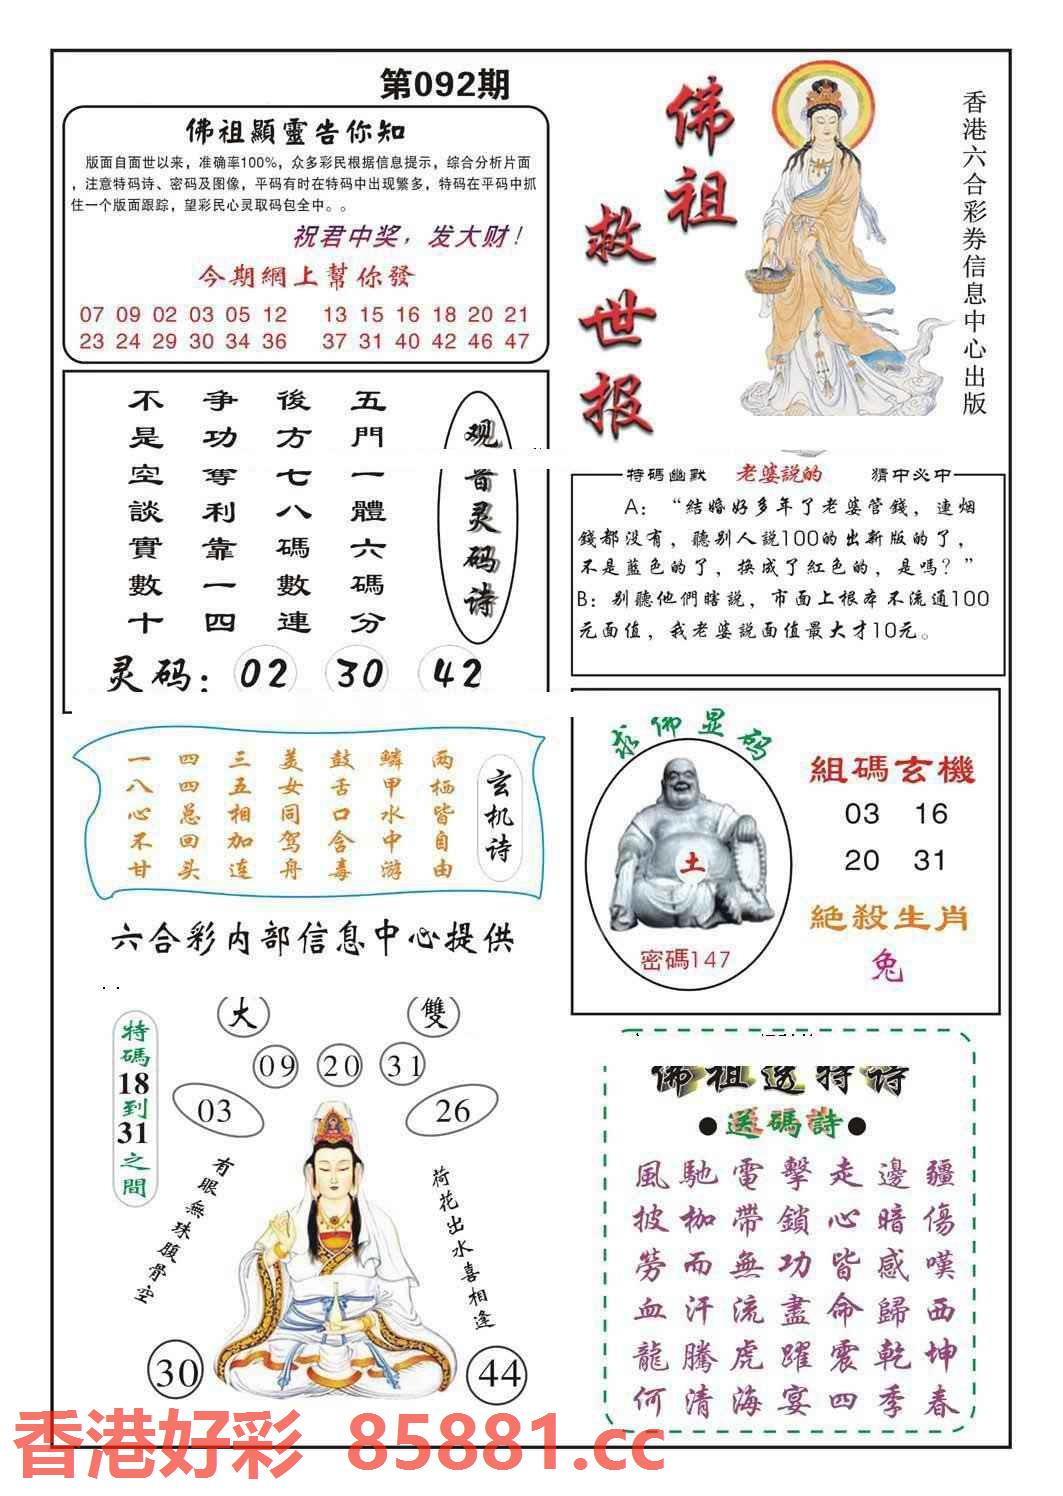 第092期
佛祖顯靈告你知
版面自面世以来，准确率100%，众多彩民根据信息提示，综合分析片面
，注意特码诗、密码及图像，平码有时在特码中出现繁多，特码在平码中抓
住一个版面跟踪，望彩民心灵取码包全中。。
祝君中奖，发大财！
今期網上幫你發
07 09 02 03 05 12 13 15 16 18 20 21
23 24 29 30 34 36 37 31 40 42 46 47
佛祖
救世报
香港六合彩券信息中心出版
观音灵码诗
五門一體六碼分
後方七八碼數連
争功奪利靠一四
不是空談實數十
灵码：02 30 42
特码幽默 老婆説的 猜中必中
A：“結婚好多年了老婆管錢，連烟
錢都没有，聽别人説100的出新版的了，
不是藍色的了，换成了紅色的，是嗎？”
B：别聽他們瞎説，市面上根本不流通100
元面值，我老婆説面值最大才10元。
玄机诗
两栖皆自由
鳞甲水中游
鼓舌口含毒
美女同驾舟
三五相加连
四四总回头
一八心不甘
求佛显码
土
密碼147
組碼玄機
03 16
20 31
絶殺生肖
兔
六合彩内部信息中心提供
特碼18到31之間
大 雙
09 20 31
03 26
有眼無珠腹骨空
荷花出水喜相逢
30 44
佛祖送特诗
●送碼詩●
風馳電擊走邊疆
披枷帶鎖心暗傷
勞而無功皆感嘆
血汗流盡命歸西
龍騰虎躍震乾坤
何清海宴四季春
香港好彩 85881.cc